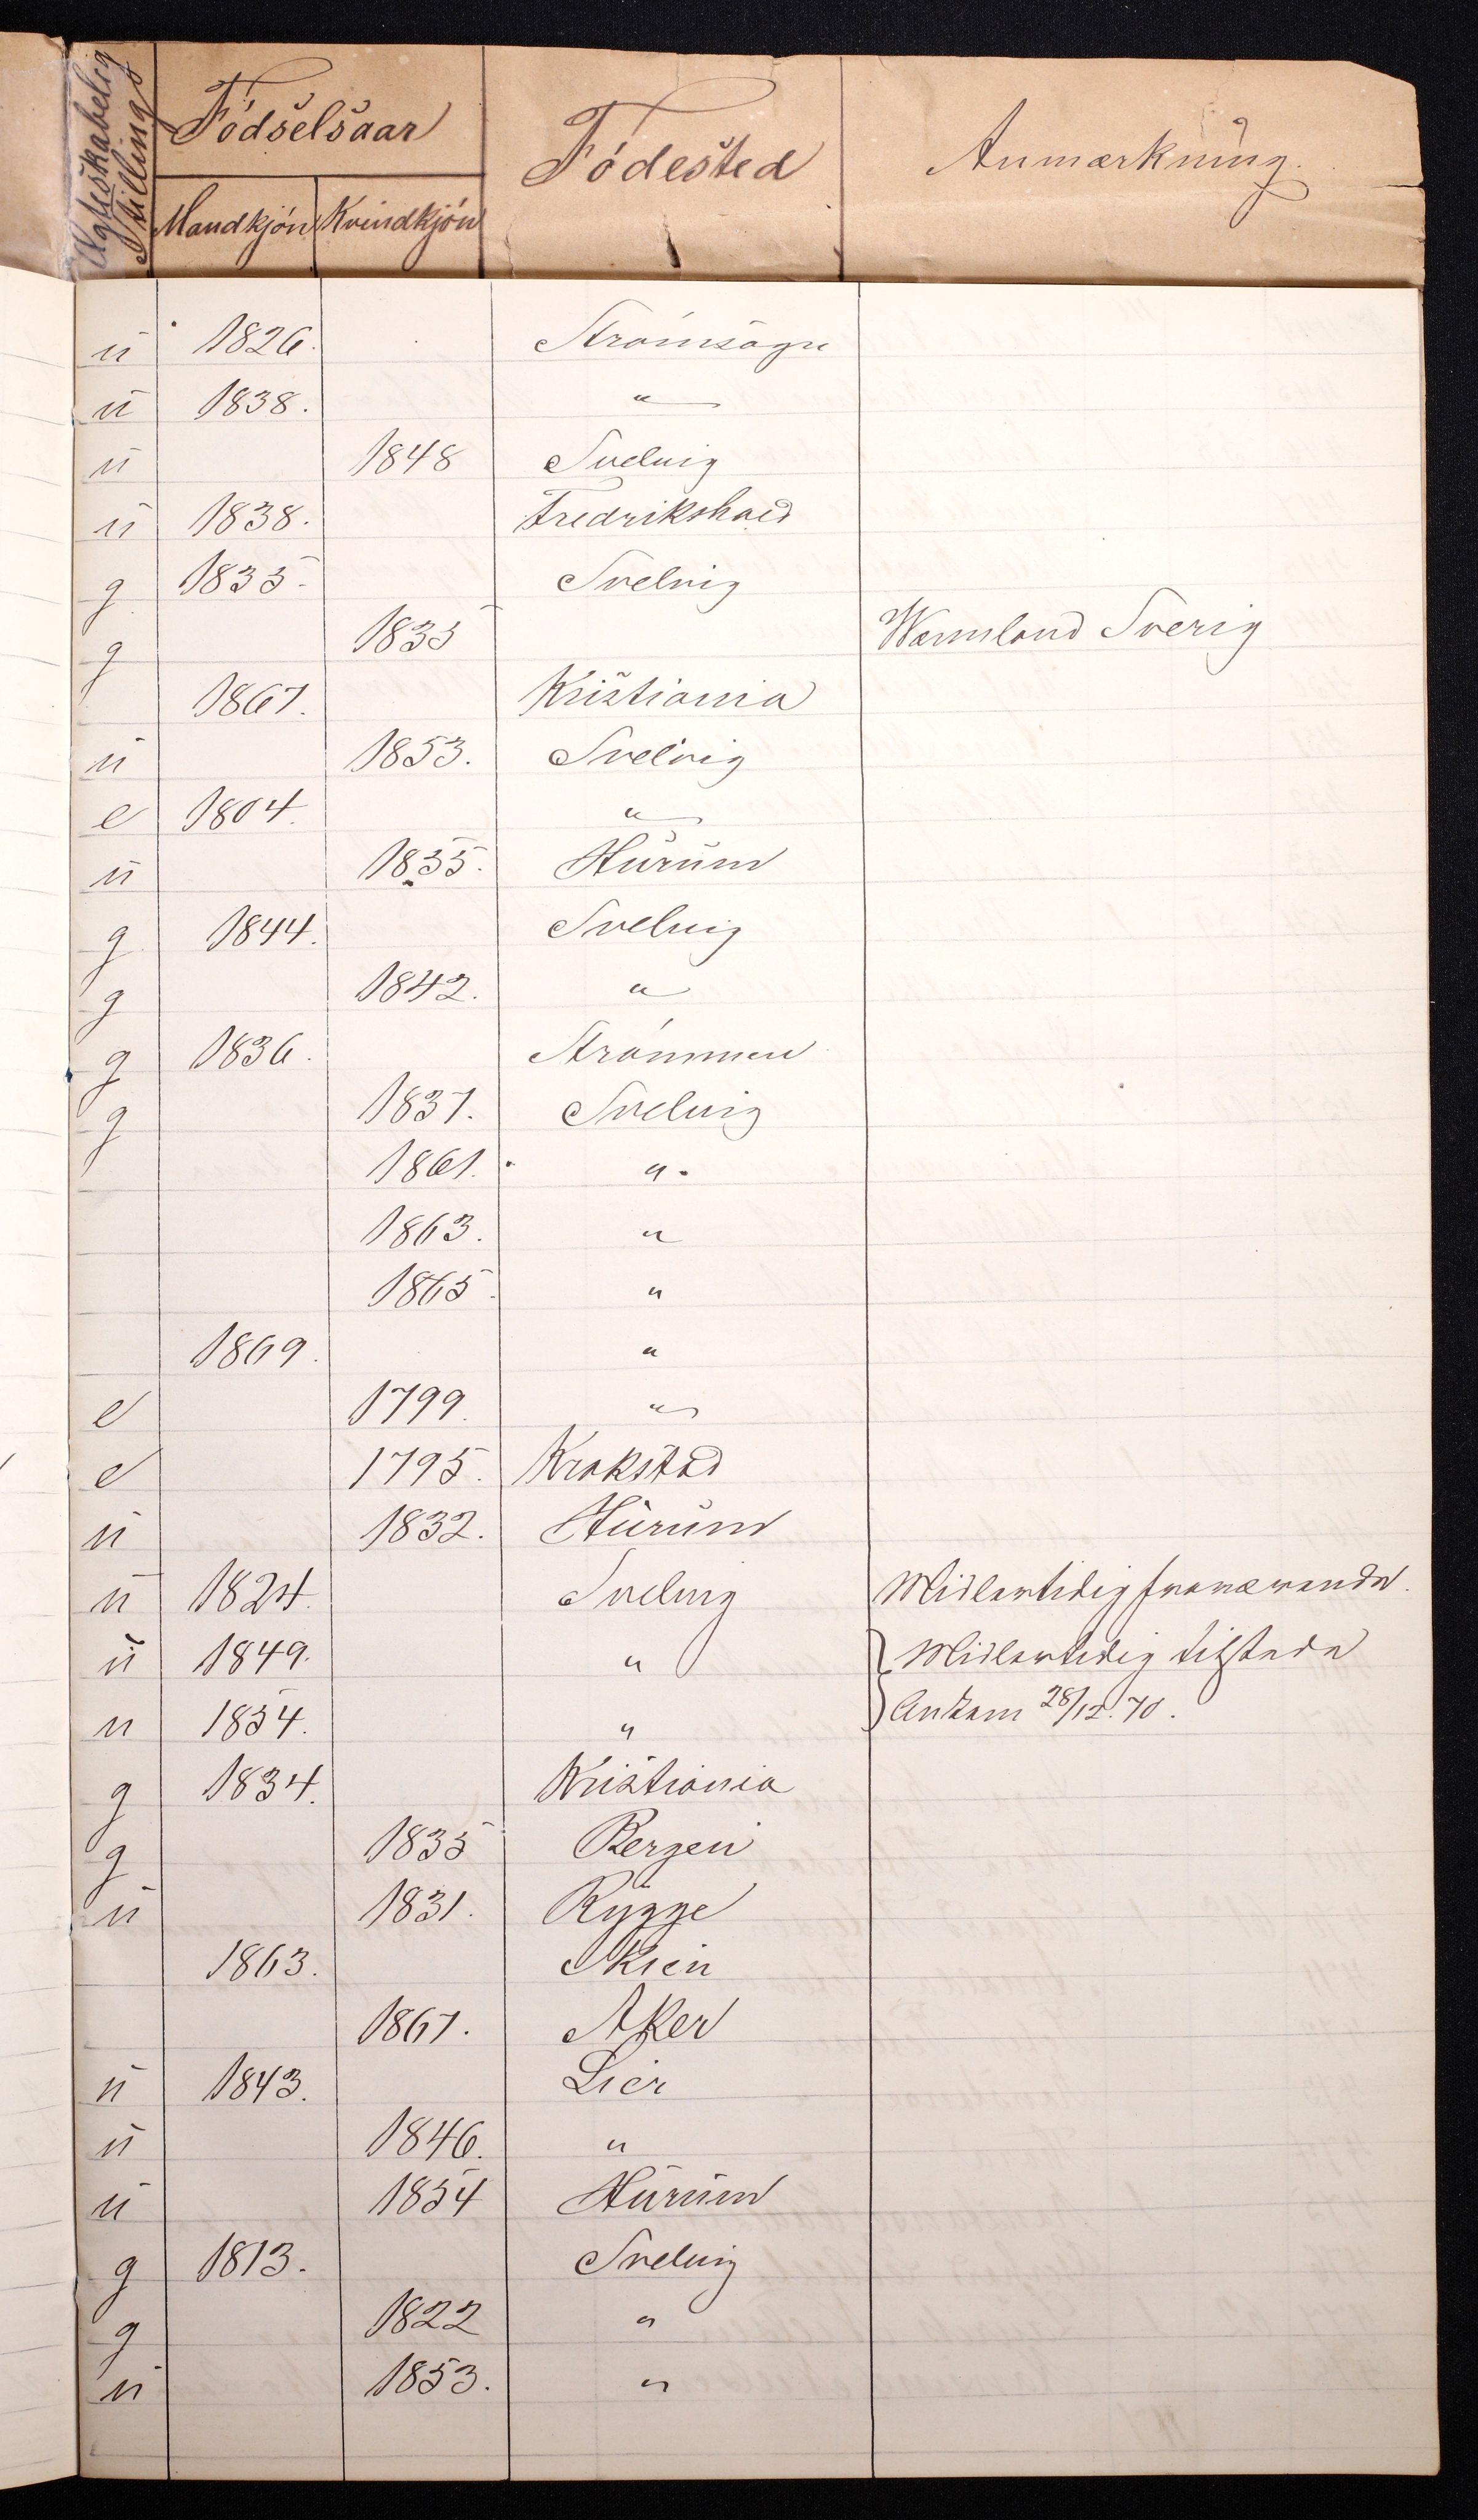 Ægteskabelig Stilling
Födselsaar
Födested
Anmærkning.
Mandkjön Kvindkjön
u 1826. Strømsøgn
u 1838. "
u 1848 Svelvig
u 1838. Fredrikshald
g 1835. Svelvig
g 1835 Wermland Sverig
1867. Kristiania
u 1853. Svelvig
e 1804. "
u 1835. Hurum
g 1844. Svelvig
g 1842. "
g 1836. Strömmen
g 1837. Svelvig
1861. "
1863. "
1865. "
1869. "
e 1799. "
e 1795. Krokstad
u 1832. Hurum
u 1824. Svelvig Midlertidig fraværende.
u 1849. " Midlertidig tilstede
u 1854. " Ankom 28/12.70.
g 1834. Kristiania
g 1835 Bergen
u 1831. Rygge
1863. Skien
1867. Aker
u 1843. Lier
u 1846. "
u 1854 Hurum
g 1813. Svelvig
g 1822 "
u 1853. "